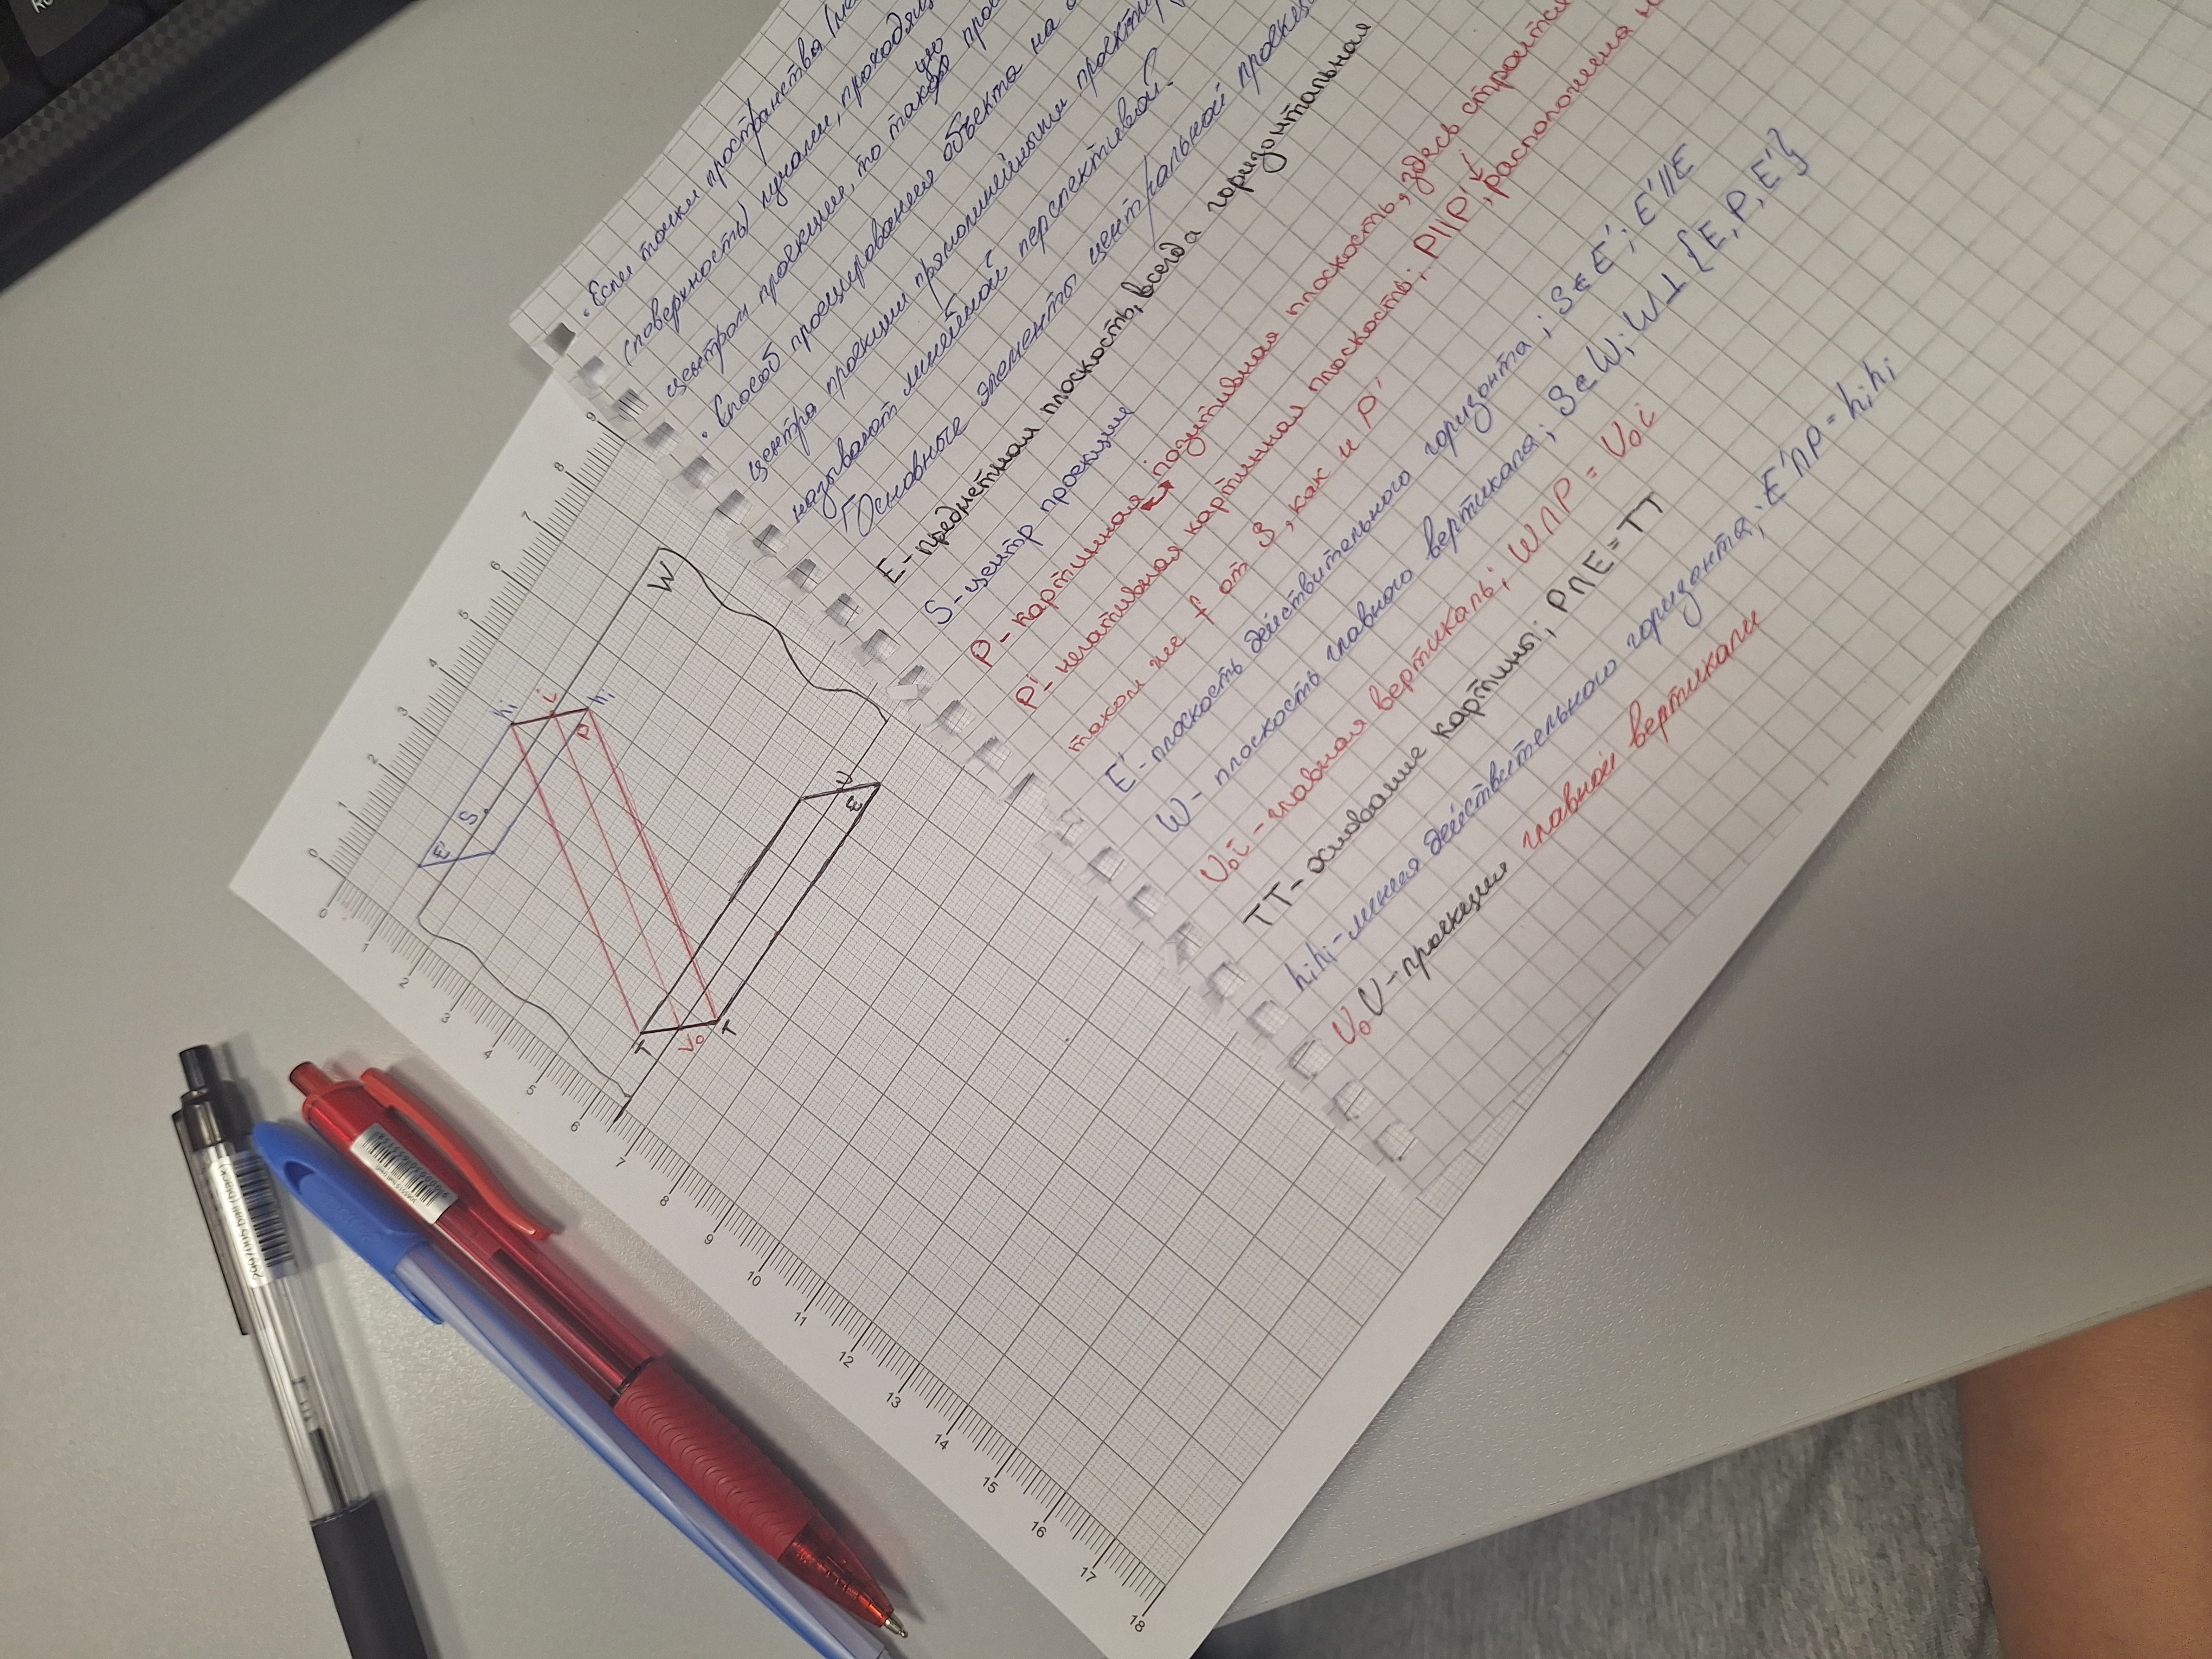 • Если точки пространства
(поверхность) лучами, проходящ
центром проекции, то такую прое
• Способ проецирования объекта на
центра проекции прямолинейными проектир
называют линейной перспективой.
Основные элементы центральной проекции
E - предметная плоскость, всегда горизонтальная
S - центр проекции
P - картинная позитивная плоскость, здесь строится
P' - негативная картинная плоскость; P||P', расположена н
таком же f от S, как и P'
E' - плоскость действительного горизонта; S∈E'; E'||E
W - плоскость главного вертикала; S∈W; W⊥{E, P, E'}
V₀i - главная вертикаль; W∩P = V₀i
TT - основание картины; P∩E = TT
hᵢhᵢ - линия действительного горизонта; E'∩P = hᵢhᵢ
V₀V - проекция главной вертикали
W
hᵢ i hᵢ
P
S
E'
V
E
T V₀ T
0 1 2 3 4 5 6 7 8 9
0 1 2 3 4 5 6 7 8 9 10 11 12 13 14 15 16 17 18